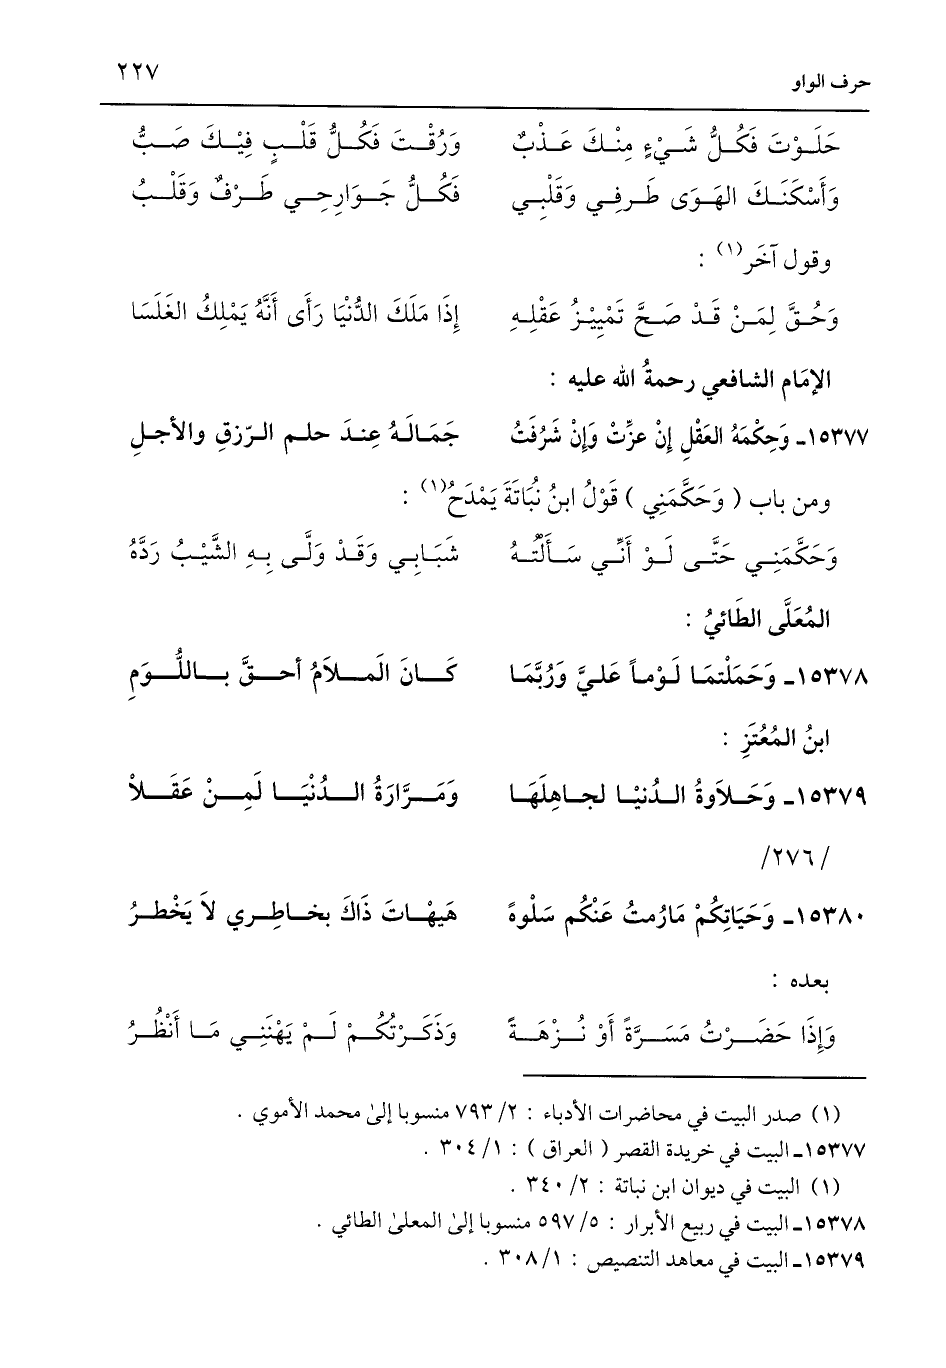 حرف الواو ٢٢٧
حَلَوْتَ فَكُلُّ شَيْءٍ مِنْكَ عَذْبٌ وَرُقْتَ فَكُلُّ قَلْبٍ فِيْكَ صَبُّ
وَأَسْكَنَكَ الهَوَى طَرفِي وَقَلْبِي فَكُلُّ جَوَارِحِي طَرْفٌ وَقَلْبُ
وقول آخَر(١) :
وَحُقَّ لِمَنْ قَدْ صَحَّ تَمْيِيْزُ عَقْلِهِ إِذَا مَلَكَ الدُّنْيَا رَأَى أَنَّهُ يَمْلِكُ الفَلَسَا
الإمَام الشافعي رحمةُ الله عليه :
١٥٣٧٧ـ وَحِكْمَهُ العَقْلِ إِنْ عزِّتْ وَإِنْ شَرُفَتُ جَمَالَهُ عِندَ حلم الرّزقِ والأجلِ
ومن باب ( وَحَكَّمَنِي ) قَوْلُ ابنُ نُبَاتَةَ يَمْدَحُ(١) :
وَحَكَّمَنِي حَتَّى لَوْ أَنِّي سَأَلْتُهُ شَبَابِي وَقَدْ وَلَّى بِهِ الشَّيْبُ رَدَّهُ
المُعَلَّى الطَائيُ :
١٥٣٧٨ـ وَحَمَلْتمَا لَوْماً عَليَّ وَرُبَّمَا كَانَ المَلاَمُ أحقَّ باللُّومِ
ابنُ المُعْتَزِ :
١٥٣٧٩ـ وَحَلاَوةُ الدُنيْا لجاهِلَهَا وَمَرَّارَةُ الدُنْيَا لَمِنْ عَقَلاْ
/٢٧٦/
١٥٣٨٠ـ وَحَيَاتِكُمْ مَارُمتُ عَنْكُم سَلْوةً هَيهْاتَ ذَاكَ بخاطِري لاَ يَخْطرُ
بعده :
وَإِذَا حَضَرْتُ مَسَرَّةً أَوْ نُزْهَةً وَذَكَرْتُكُمْ لَمْ يَهْنَنِي مَا أَنْظُرُ
(١) صدر البيت في محاضرات الأدباء : ٢/ ٧٩٣ منسوبا إلىٰ محمد الأموي .
١٥٣٧٧ـ البيت في خريدة القصر ( العراق ) : ١/ ٣٠٤ .
(١) البيت في ديوان ابن نباتة : ٢/ ٣٤٠ .
١٥٣٧٨ـ البيت في ربيع الأبرار : ٥/ ٥٩٧ منسوبا إلىٰ المعلىٰ الطائي .
١٥٣٧٩ـ البيت في معاهد التنصيص : ١/ ٣٠٨ .